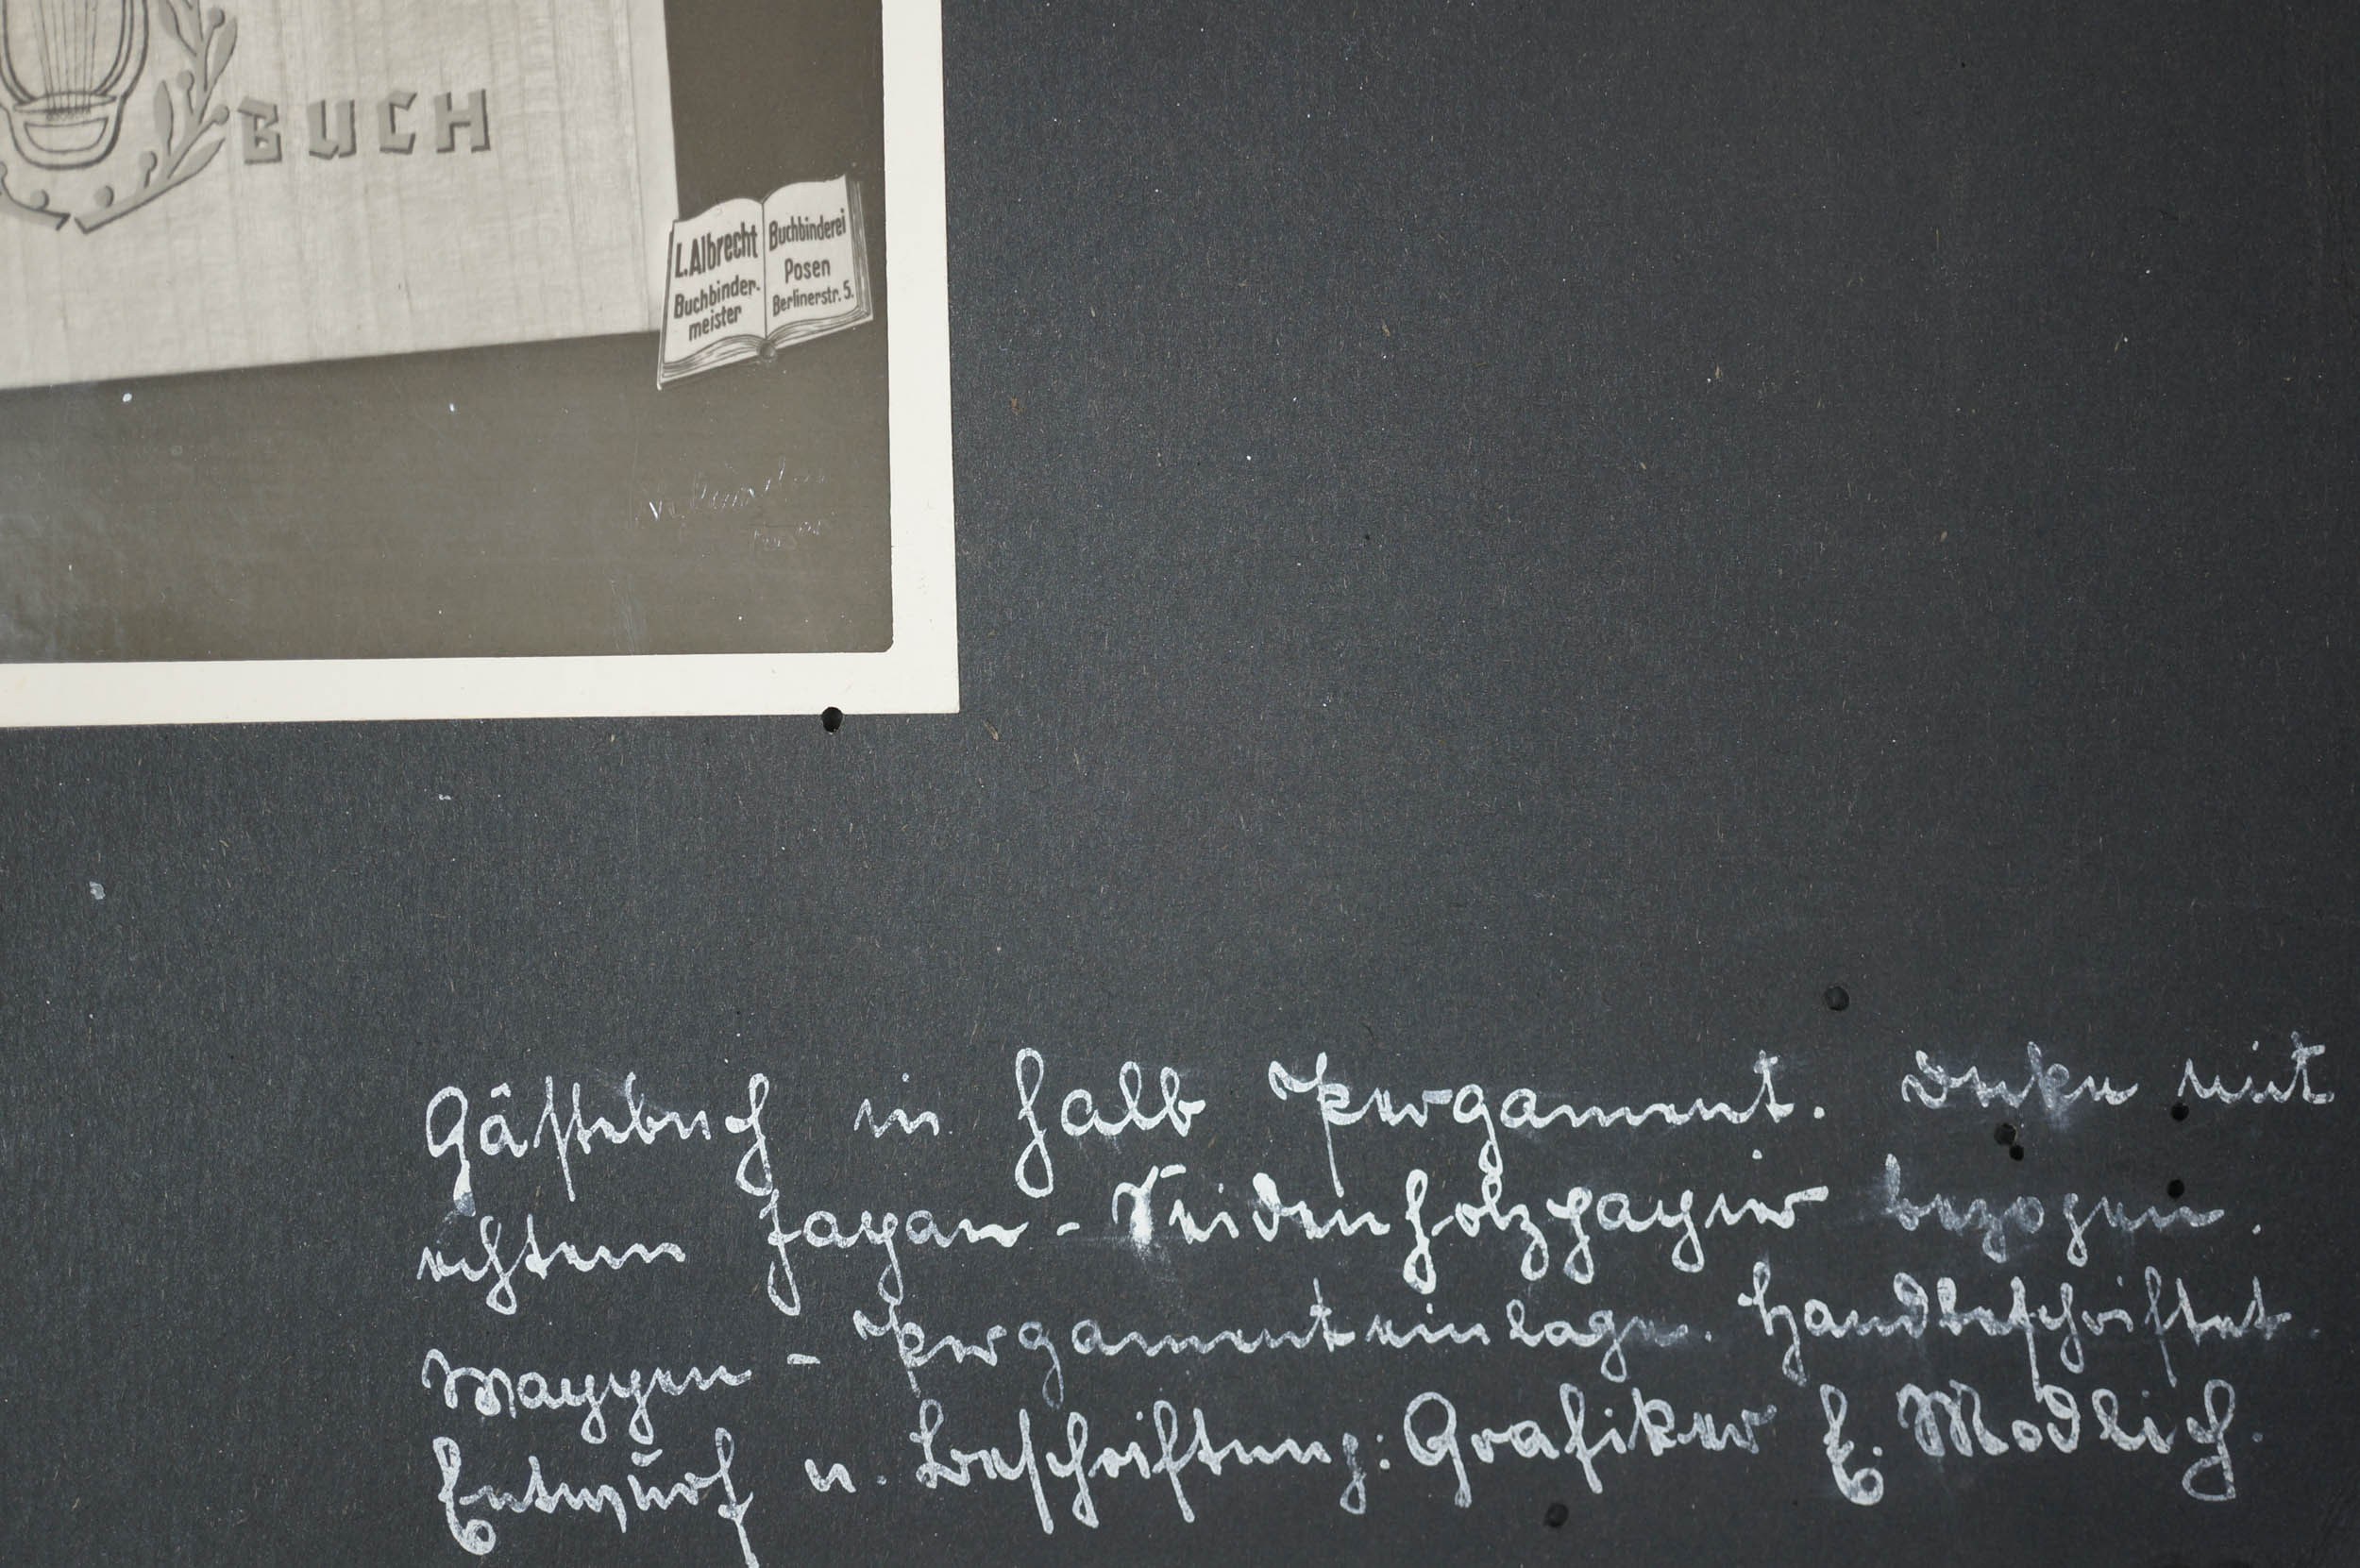 BUCH
L. Albrecht
Buchbinder-
meister
Buchbinderei
Posen
Berlinerstr. 5.
Gästebuch in halb Pergament. Decke mit
echtem Japan-Seidenholzpapier bezogen.
Mappen-Pergamenteinlage. Handbeschriftet.
Entwurf u. Beschriftung: Grafiker E. Modlich.